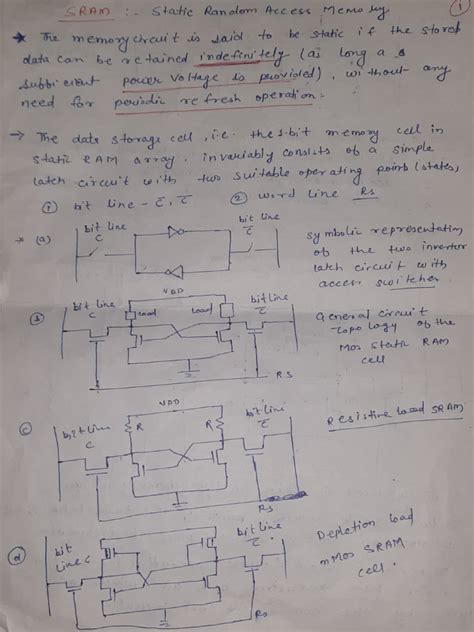 SRAM :- Static Random Access Memory
①
★ The memory circuit is said to be static if the stored
data can be retained indefinitely (as long as
sufficient power voltage is provided), without any
need for periodic refresh operation.
→ The data storage cell, i.e. the 1-bit memory cell in
static RAM array, invariably consists of a simple
latch circuit with two suitable operating points (states)
① bit line - C, C̅ ② word line RS
(a)
bit line
C
bit line
C̅
symbolic representation
of the two inverter
latch circuit with
access switches
(b)
VDD
bit line
C
Load
Load
bit line
C̅
RS
General circuit
topology of the
Mos static RAM
cell
(c)
VDD
bit line
C
R
R
bit line
C̅
RS
Resistive load SRAM
(d)
bit
line C
bit line
C̅
RS
Depletion load
nMos SRAM
cell.